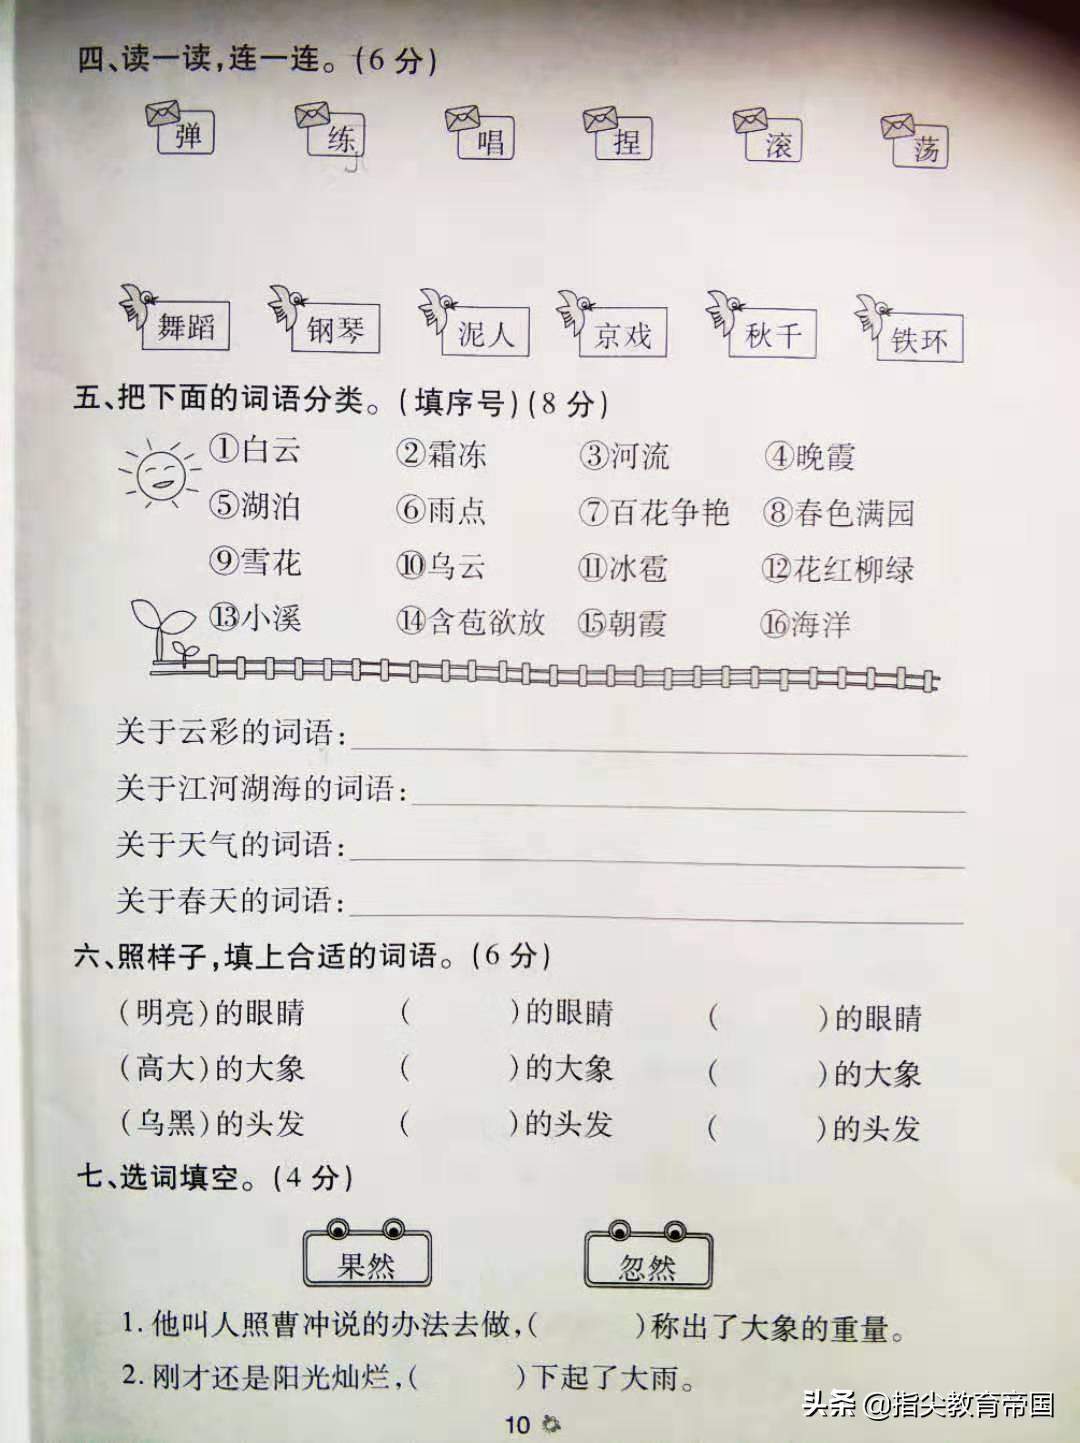 四、读一读,连一连。(6分)
弹 练 唱 捏 滚 荡
舞蹈 钢琴 泥人 京戏 秋千 铁环
五、把下面的词语分类。(填序号)(8分)
①白云 ②霜冻 ③河流 ④晚霞
⑤湖泊 ⑥雨点 ⑦百花争艳 ⑧春色满园
⑨雪花 ⑩乌云 ⑪冰雹 ⑫花红柳绿
⑬小溪 ⑭含苞欲放 ⑮朝霞 ⑯海洋
关于云彩的词语:
关于江河湖海的词语:
关于天气的词语:
关于春天的词语:
六、照样子,填上合适的词语。(6分)
(明亮)的眼睛 ( )的眼睛 ( )的眼睛
(高大)的大象 ( )的大象 ( )的大象
(乌黑)的头发 ( )的头发 ( )的头发
七、选词填空。(4分)
果然 忽然
1.他叫人照曹冲说的办法去做,( )称出了大象的重量。
2.刚才还是阳光灿烂,( )下起了大雨。
10
头条 @指尖教育帝国